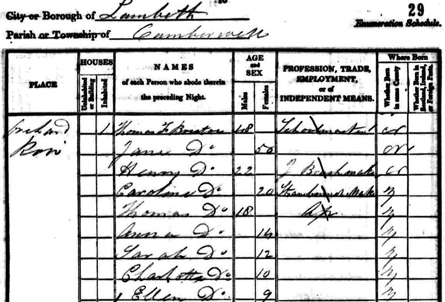 29
City or Borough of Lambeth
Enumeration Schedule.
Parish or Township of Camberwell
PLACE
HOUSES
Uninhabited or Building
Inhabited
NAMES
of each Person who abode therein the preceding Night.
AGE and SEX
Males
Females
PROFESSION, TRADE, EMPLOYMENT, or of INDEPENDENT MEANS.
Where Born
Whether Born in same County
Whether Born in Scotland, Ireland, or Foreign Parts.
Orchard Row 1 Thomas 48 Schoolmaster
Jane Do 50
Henry Do 22 J
Caroline Do 20 Maker
Thomas Do 18
Anna Do
Sarah Do 12
Charlotte Do 10
Ellen Do 9